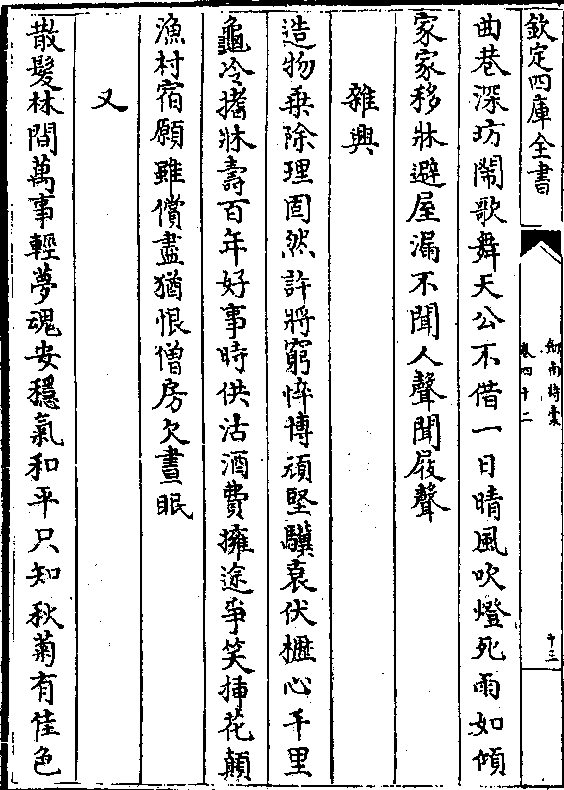 欽定四庫全書
劍南詩藁
卷四十二
十三
曲巷深坊鬧歌舞天公不借一日晴風吹燈死雨如傾
家家移牀避屋漏不聞人聲聞屐聲
雜興
造物乗除理固然許將窮悴博頑堅驥衰伏櫪心千里
龜冷搘牀壽百年好事時供沽酒費擁途爭笑揷花顛
漁村宿願雖償盡猶恨僧房欠晝眠
又
散髮林間萬事輕夢魂安穩氣和平只知秋菊有佳色